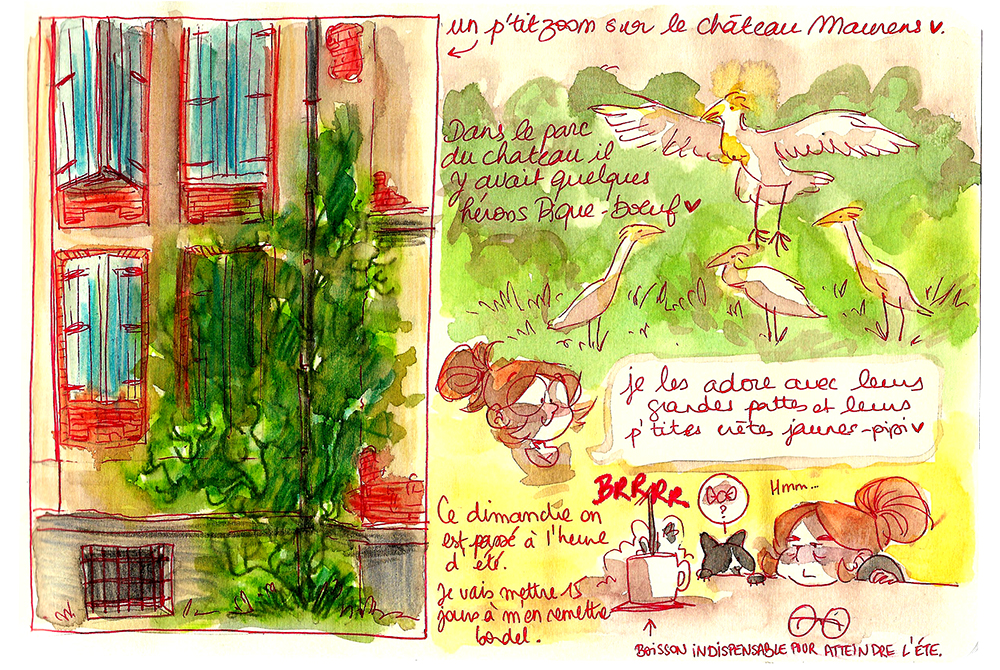 un p'tit zoom sur le château Maurens ♥.
Dans le parc
du chateau il
y avait quelques
hérons Pique-boeuf ♥
je les adore avec leurs
grandes pattes et leurs
p'tites crêtes jaunes-pipi ♥
Ce dimanche on
est passé à l'heure
d'été.
Je vais mettre 15
jours à m'en remettre
bordel.
BRRRR
?
Hmm...
BOISSON INDISPENSABLE POUR ATTEINDRE L'ÉTÉ.